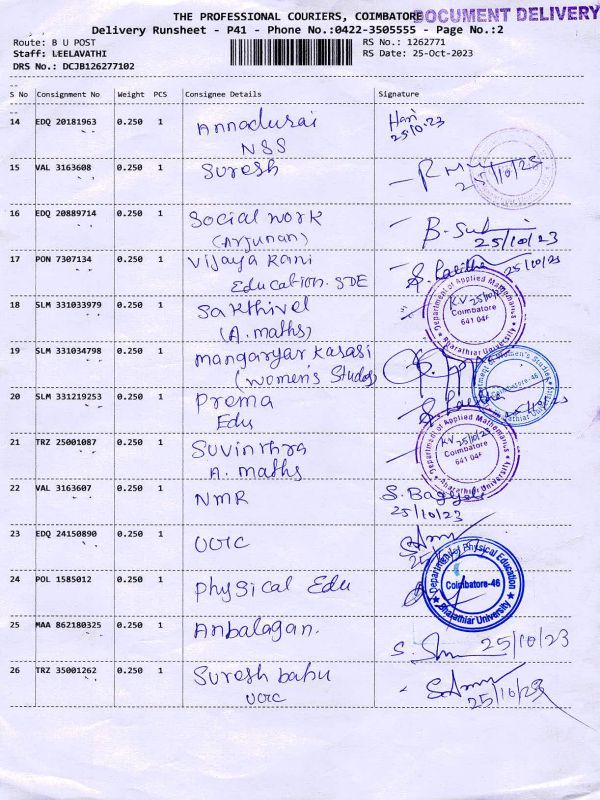 THE PROFESSIONAL COURIERS, COIMBATORE
DOCUMENT DELIVERY
Delivery Runsheet - P41 - Phone No.:0422-3505555 - Page No.:2
Route: B U POST
RS No.: 1262771
Staff: LEELAVATHI
RS Date: 25-Oct-2023
DRS No.: DCJB126277102
S No Consignment No Weight PCS Consignee Details Signature
14 EDQ 20181963 0.250 1 Annadurai Hari
NSS 25/10.23
15 VAL 3163608 0.250 1 Suresh
25/10/23
16 EDQ 20889714 0.250 1 Social work
(Arjunan) 25/10/23
17 PON 7307134 0.250 1 Vijaya Rani S. Lalitha 25/10/23
Education. SDE
18 SLM 331033979 0.250 1 Sakthivel
(A. maths)
Department of Applied Mathematics
K.V 25/10/23
Coimbatore
641 04
Bharathiar University
19 SLM 331034798 0.250 1 Mangaryar Karasi
(Women's Studies)
Department of Women's Studies
Coimbatore-46
Bharathiar University
20 SLM 331219253 0.250 1 Prema
Edu 25/10/23
21 TRZ 25001087 0.250 1 Suvinthra
A. maths
Department of Applied Mathematics
K.V 25/10/23
Coimbatore
641 04
Bharathiar University
22 VAL 3163607 0.250 1 NMR
25/10/23
23 EDQ 24150890 0.250 1 UOIC
24 POL 1585012 0.250 1 Physical Edu
Department of Physical Education
Coimbatore-46
Bharathiar University
25 MAA 862180325 0.250 1 Anbalagan.
25/10/23
26 TRZ 35001262 0.250 1 Suresh babu
UOIC 25/10/23